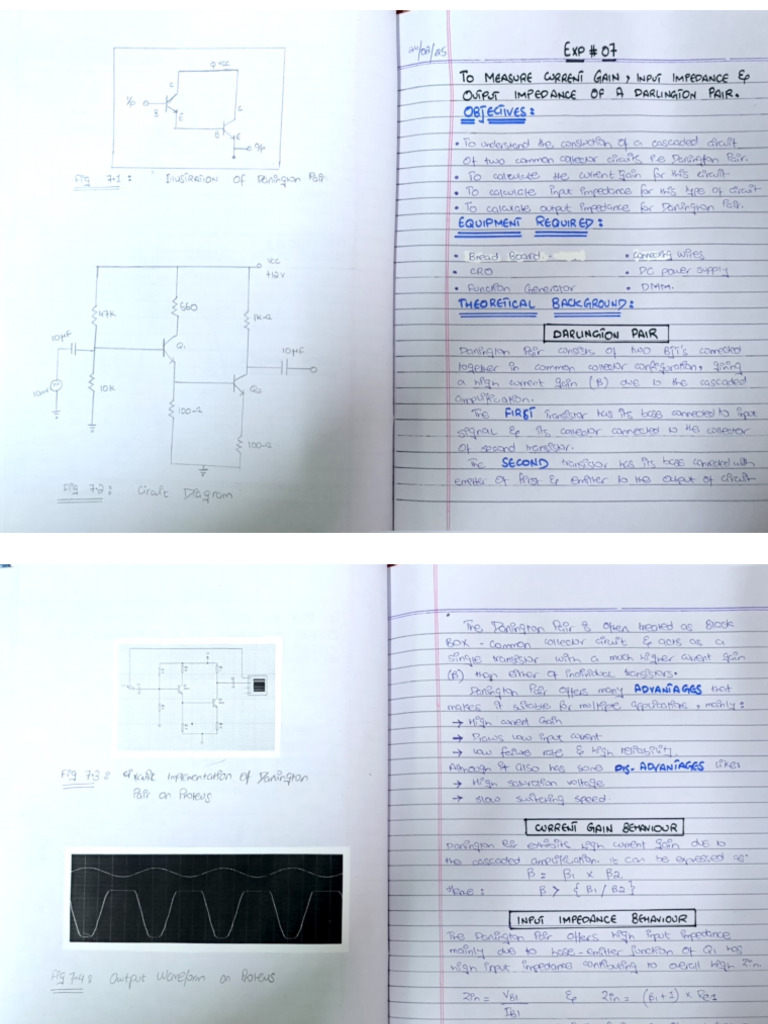 φ VCC
C
I/p
B
E
C
B
E
O/p
Fig 7.1: Illustration of Darlington Pair
VCC
+12V
47K
560
1KΩ
10μF
Q1
10μF
10mV
10K
Q2
100Ω
100Ω
Fig 7.2: Circuit Diagram
EXP # 07
TO MEASURE CURRENT GAIN, INPUT IMPEDANCE &
OUTPUT IMPEDANCE OF A DARLINGTON PAIR.
OBJECTIVES:
• To understand the construction of a cascaded circuit
of two common collector circuits i.e Darlington Pair.
• To calculate the current gain for this circuit
• To calculate input impedance for this type of circuit
• To calculate output impedance for Darlington Pair.
EQUIPMENT REQUIRED:
• Bread Board. • Connecting wires
• CRO • DC power supply
• Function Generator • DMM.
THEORETICAL BACKGROUND:
DARLINGTION PAIR
Darlington Pair consists of two BJT's connected
together in common collector configuration, giving
a high current gain (β) due to the cascaded
amplification.
The FIRST transistor has its base connected to input
signal & its collector connected to the collector
of second transistor.
The SECOND transistor has its base connected with
emitter of first & emitter to the output of circuit
Fig 7.3: Implementation of Darlington
Pair on Proteus
Fig 7.4: Output Waveform on Proteus
The Darlington Pair is often treated as Black
BOX - Common collector circuit & acts as a
single transistor with a much higher current gain
(β) than either of individual transistors.
Darlington Pair offers many ADVANTAGES that
makes it suitable for multiple applications, mainly:
→ High current Gain
→ Draws low input current
→ low failure rate & high reliability.
Although it also has some DIS-ADVANTAGES like:
→ High saturation voltage
→ slow switching speed.
CURRENT GAIN BEHAVIOUR
Darlington Pair exhibits high current gain due to
the cascaded amplification. It can be expressed as:
β = β1 x β2
Here: β > {β1 / β2}
INPUT IMPEDANCE BEHAVIOUR
The Darlington Pair offers high input impedance
mainly due to base-emitter junction of Q1 has
high input impedance contributing to overall high Zin
Zin = VB1 / IB1 & Zin = (β1 + 1) x RE1